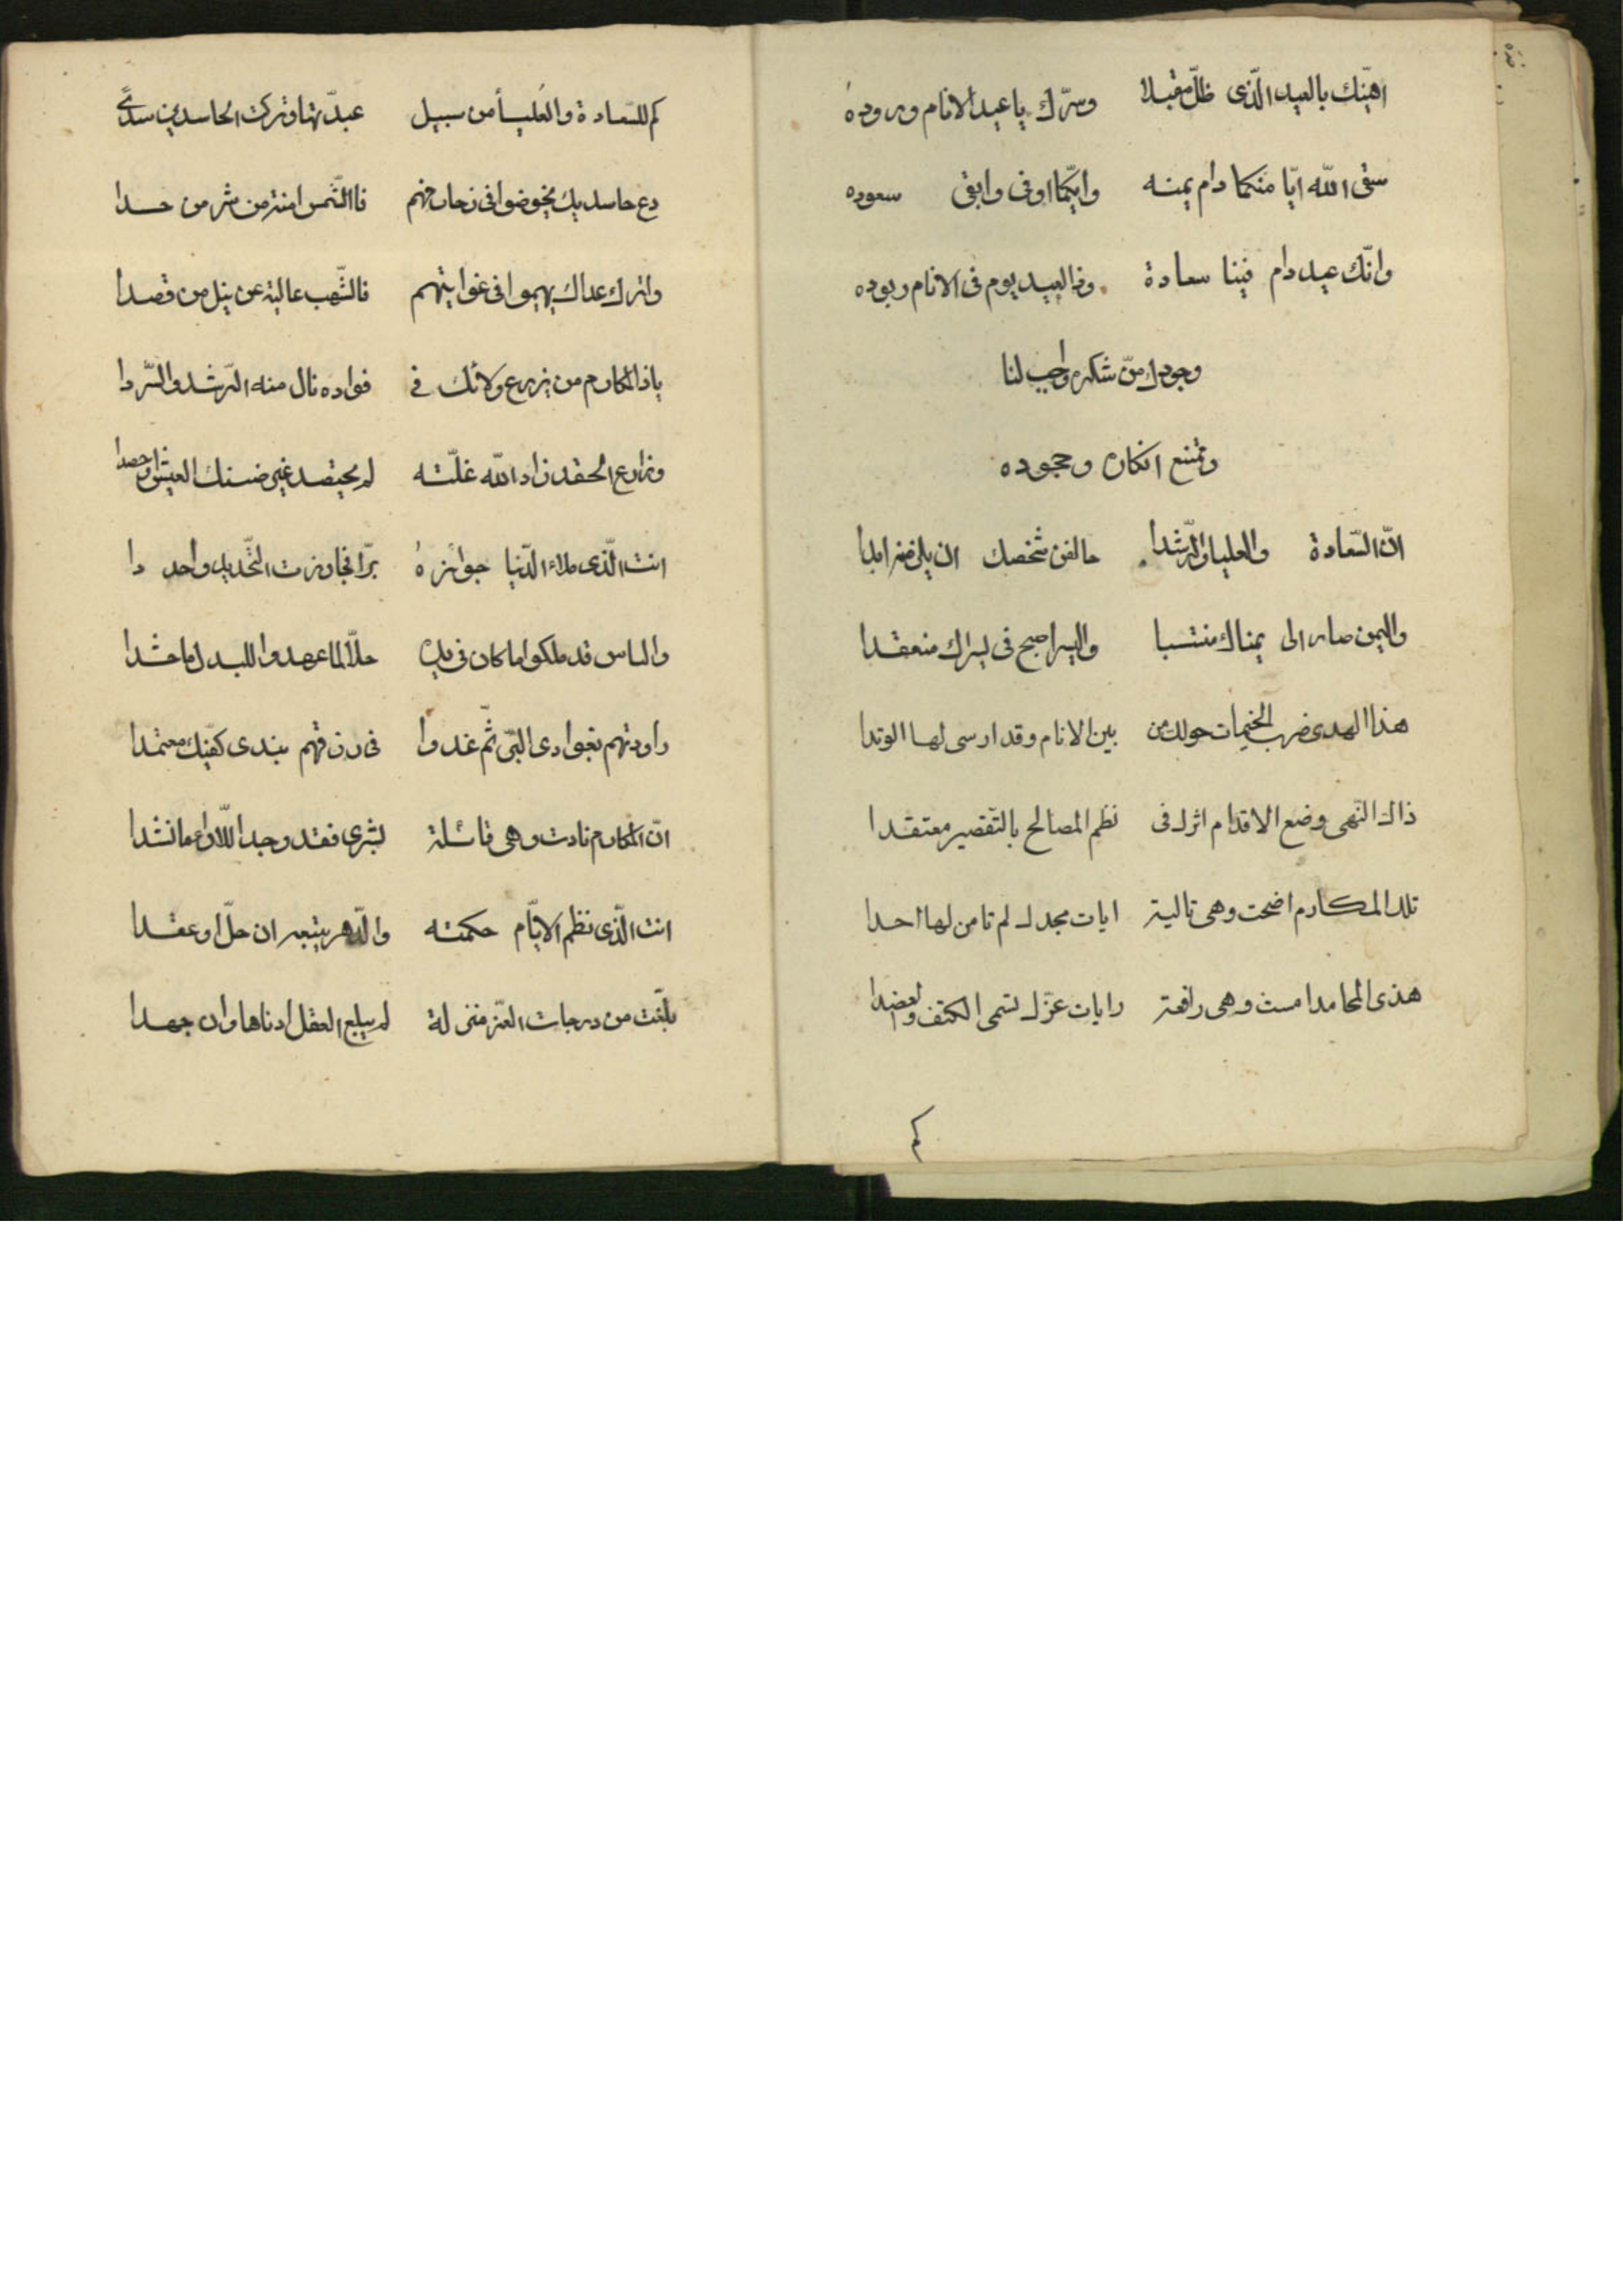 اهنّيك بالعيد الّذى ظلّ مقبلا وسرّك يا عيد الانام وروده
سقى اللّه ايّا منكما دام يمنه وايّكما اوفى وابقى سعوده
وانّك عيد دام فينا سعادة وذا العيد يوم فى الانام ربوده
وجودك منّ شكره واجب لنا
وتمنع انكاره وجحوده
انّ السّعادة والعليا والرّشدا حالفن شخصك ان يلزمنه ابدا
واليمن صار الى يمناك منتسبا واليسر اصبح فى يسراك منعقدا
هذا الهدى ضرب الخيمات حولك من بين الانام وقد ارسى لها الوتدا
ذاك النهى وضع الاقدام اثرك فى نظم المصالح بالتّقصير معتقدا
تلك المكارم اضحت وهى تالية ايات مجدك لم تامن لها احدا
هذى المحامد امست وهى رافعة رايات عزّك تسمى الكتف والعضدا
كم للسّعادة والعليا من سبيل عبدّتها وتركت الحاسدين سدًى
دع حاسديك يخوضوا فى فاالشّمس امنة من شر من حسدا
واترك عداك يهيموا فى غوايتهم فالشّهب عالية عن نيل من قصدا
ياذا المكارم من يزرع ولائك فى فواده نال منه الرّشد والسّردا
وزارع الحقد زاد اللّه غلّته لم يحتصد غير ضنك العيش اذ حصدا
انت الّذى ملاء الدّنيا جوائزهُ برّا فجاوزت التّحديد واحد دا
والناس قد ملكوا ما كان فى يده حلّا لما عهدوا للبدل ما حشدا
راودتهم بغوادى البّر ثمّ غدوا فى رزقهم بندى كفّيك معتمدا
انّ المكارم نادت وهى قائلة بشرى فقد وجد اللاواء ما نشدا
انت الّذى نظم الايّام حكمته والدّهر يتبعه ان حلّ او عقدا
بلّغت من درجات العزّ منزلة لم يبلغ العقل ادناها وان جهدا